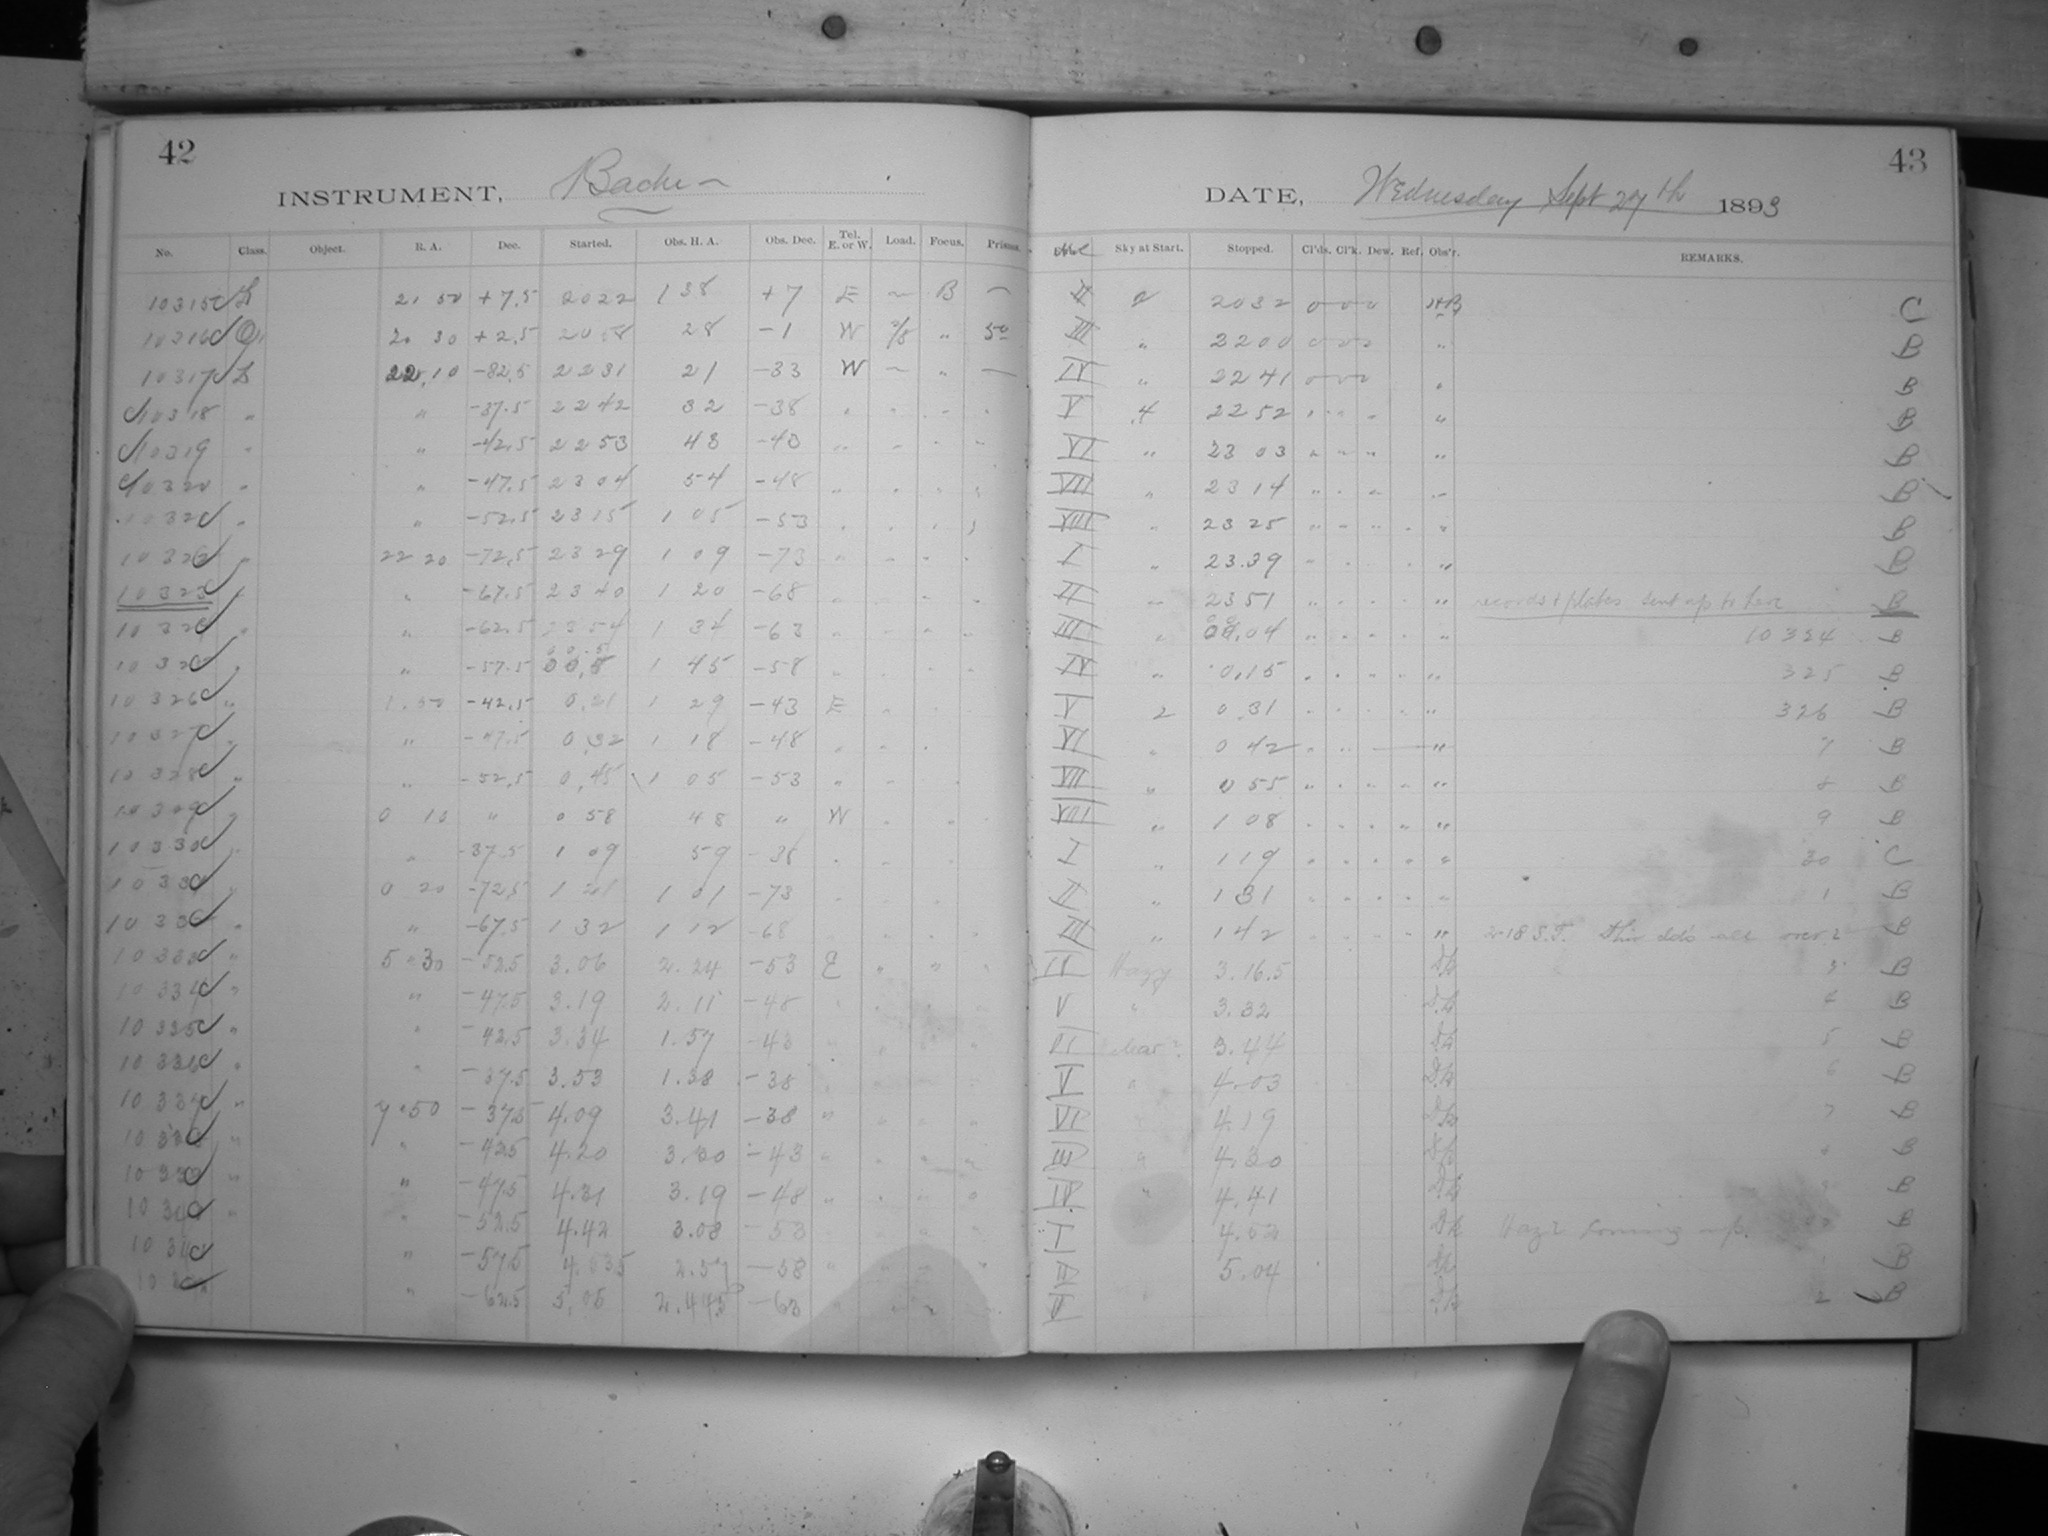 42
INSTRUMENT, Bache
No. Class. Object. R. A. Dec. Started. Obs. H. A. Obs. Dec. Tel. E. or W. Load. Focus. Prisms.
10315 L 21 50 +7.5 2022 1 38 +7 E ~ B —
10316 20 30 +2.5 2058 28 -1 W " 50
10317 L 22,10 -32.5 2231 21 -33 W ~ " —
10318 " " -37.5 2242 32 -38
10319 " " -42.5 2253 43 -43
10320 " " -47.5 2304 54 -48
10321 " " -52.5 2315 1 05 -53
10322 " 22 20 -72.5 2329 1 09 -73
10323 " " -67.5 2340 1 20 -68
10324 " " -62.5 2354 1 34 -63
10325 " " -57.5 00,5 1 45 -58
10326 " 1.50 -42.5 0,21 1 29 -43 E
10327 " " -47.5 0,32 1 18 -48
10328 " " -52.5 0,45 1 05 -53
10329 " 0 10 " 0 58 48 " W
10330 " " -37.5 1 09 59 -38
10331 " 0 20 -72.5 1 21 1 01 -73
10332 " " -67.5 1 32 1 12 -68
10333 " 5 30 -52.5 3.06 2.24 -53 E " "
10334 " " -47.5 3.19 2.11 -48
10335 " " -42.5 3.34 1.57 -43
10336 " " -37.5 3.53 1.38 -38
10337 " 7 50 -37.5 4.09 3.41 -38 "
10338 " " -42.5 4.20 3.30 -43
10339 " " -47.5 4.31 3.19 -48
10340 " " -52.5 4.42 3.08 -53
10341 " -57.5 4.535 2.57 -58
" " -62.5 5.05 2.445 -63
43
DATE, Wednesday Sept 27th 1893
Sky at Start. Stopped. Cl'ds. Cl'k. Dew. Ref. Obs'r. REMARKS.
II 2 2032 0 0 0 C
III " 2200 0 0 0 " B
IV " 2241 0 0 0 " B
V 4 2252 " B
VI " 2303 " B
VII " 2314 B
VIII " 2325 " B
I " 23.39 " B
II 2351 " records & plates sent up to here B
III 04 " 10324 B
IV " 0,15 " 325 B
V 2 0 31 " 326 B
VI " 0 42 " 7 B
VII " 0 55 " 8 B
VIII " 1 08 " 9 B
I " 1 19 " 30 C
II " 1 31 " 1 B
III " 1 42 " 2 18 S.T. B
IV Hazy 3.16.5 3 B
V " 3.32 4 B
3.44 5 B
V " 4.03 6 B
VI 4.19 7 B
III 4.30 B
IV " 4.41 B
I 4.52 Hazy coming up. B
5.04 B
2 B